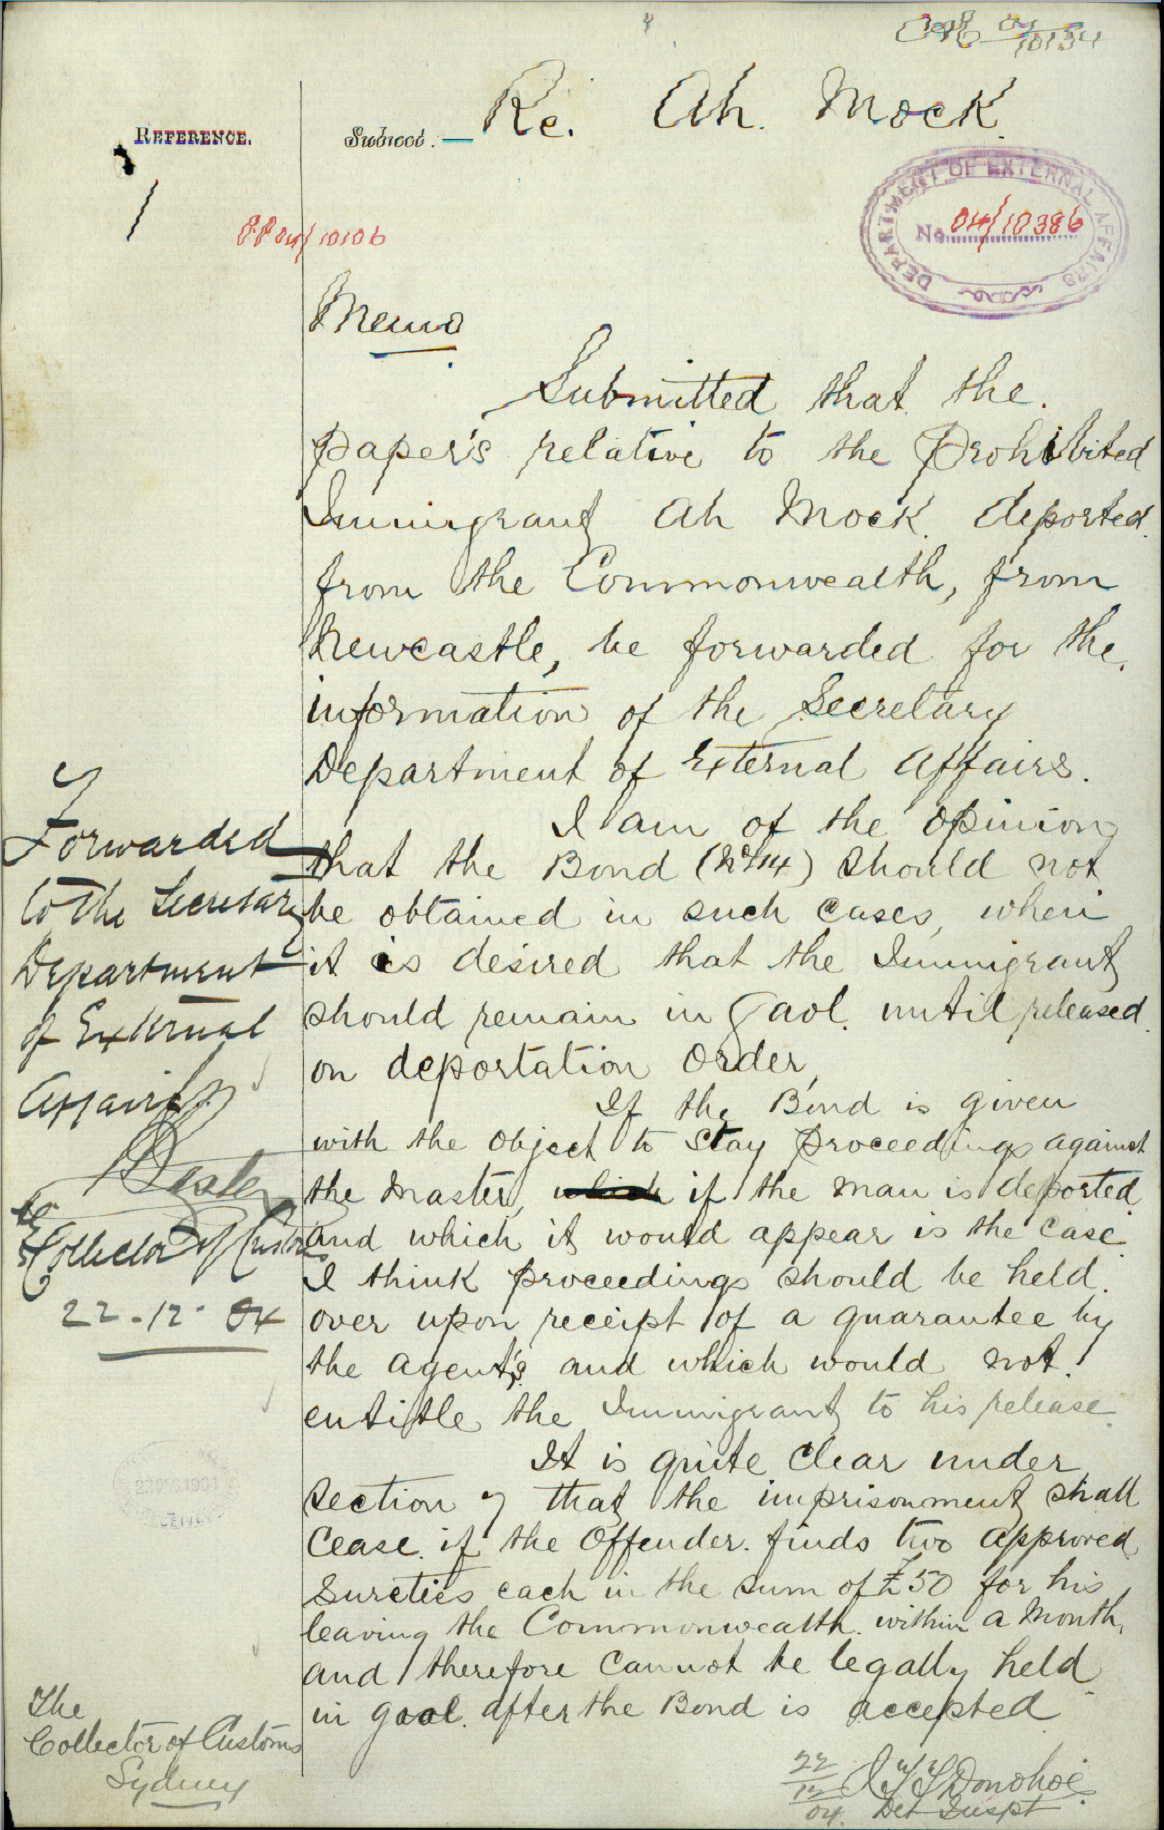 04/10134
Re. Ah. Mock.
REFERENCE.
Subject.—
DEPARTMENT OF EXTERNAL AFFAIRS
No. 04/10386
04/10106
Memo
Submitted that the.
paper's relative to the Prohibited
Immigrant Ah Mock. deported.
from the Commonwealth, from
Newcastle, be forwarded for the.
information of the Secretary
Department of External Affairs.
I am of the opinion
that the Bond (No 14) should not
be obtained in such cases, when
it is desired that the Immigrant
should remain in Gaol. until released.
on deportation order,
If the Bond is given
with the object to stay proceedings against
the Master, which if the man is deported
and which it would appear is the case.
I think proceedings should be held.
over upon receipt of a guarantee by
the agent's and which would not.
entitle the Immigrant to his release.
It is quite clear under
Section 7 that the imprisonment shall
cease. if the offender. finds two approved
Sureties each in the sum of £50 for his
leaving the Commonwealth. within a Month,
and therefore cannot be legally held
in gaol. after the Bond is accepted
22/12/04. Donohoe
Det Inspt
Forwarded
to the Secretary
Department
of External
Affairs
Collector of Customs
22-12-04
The
Collector of Customs
Sydney